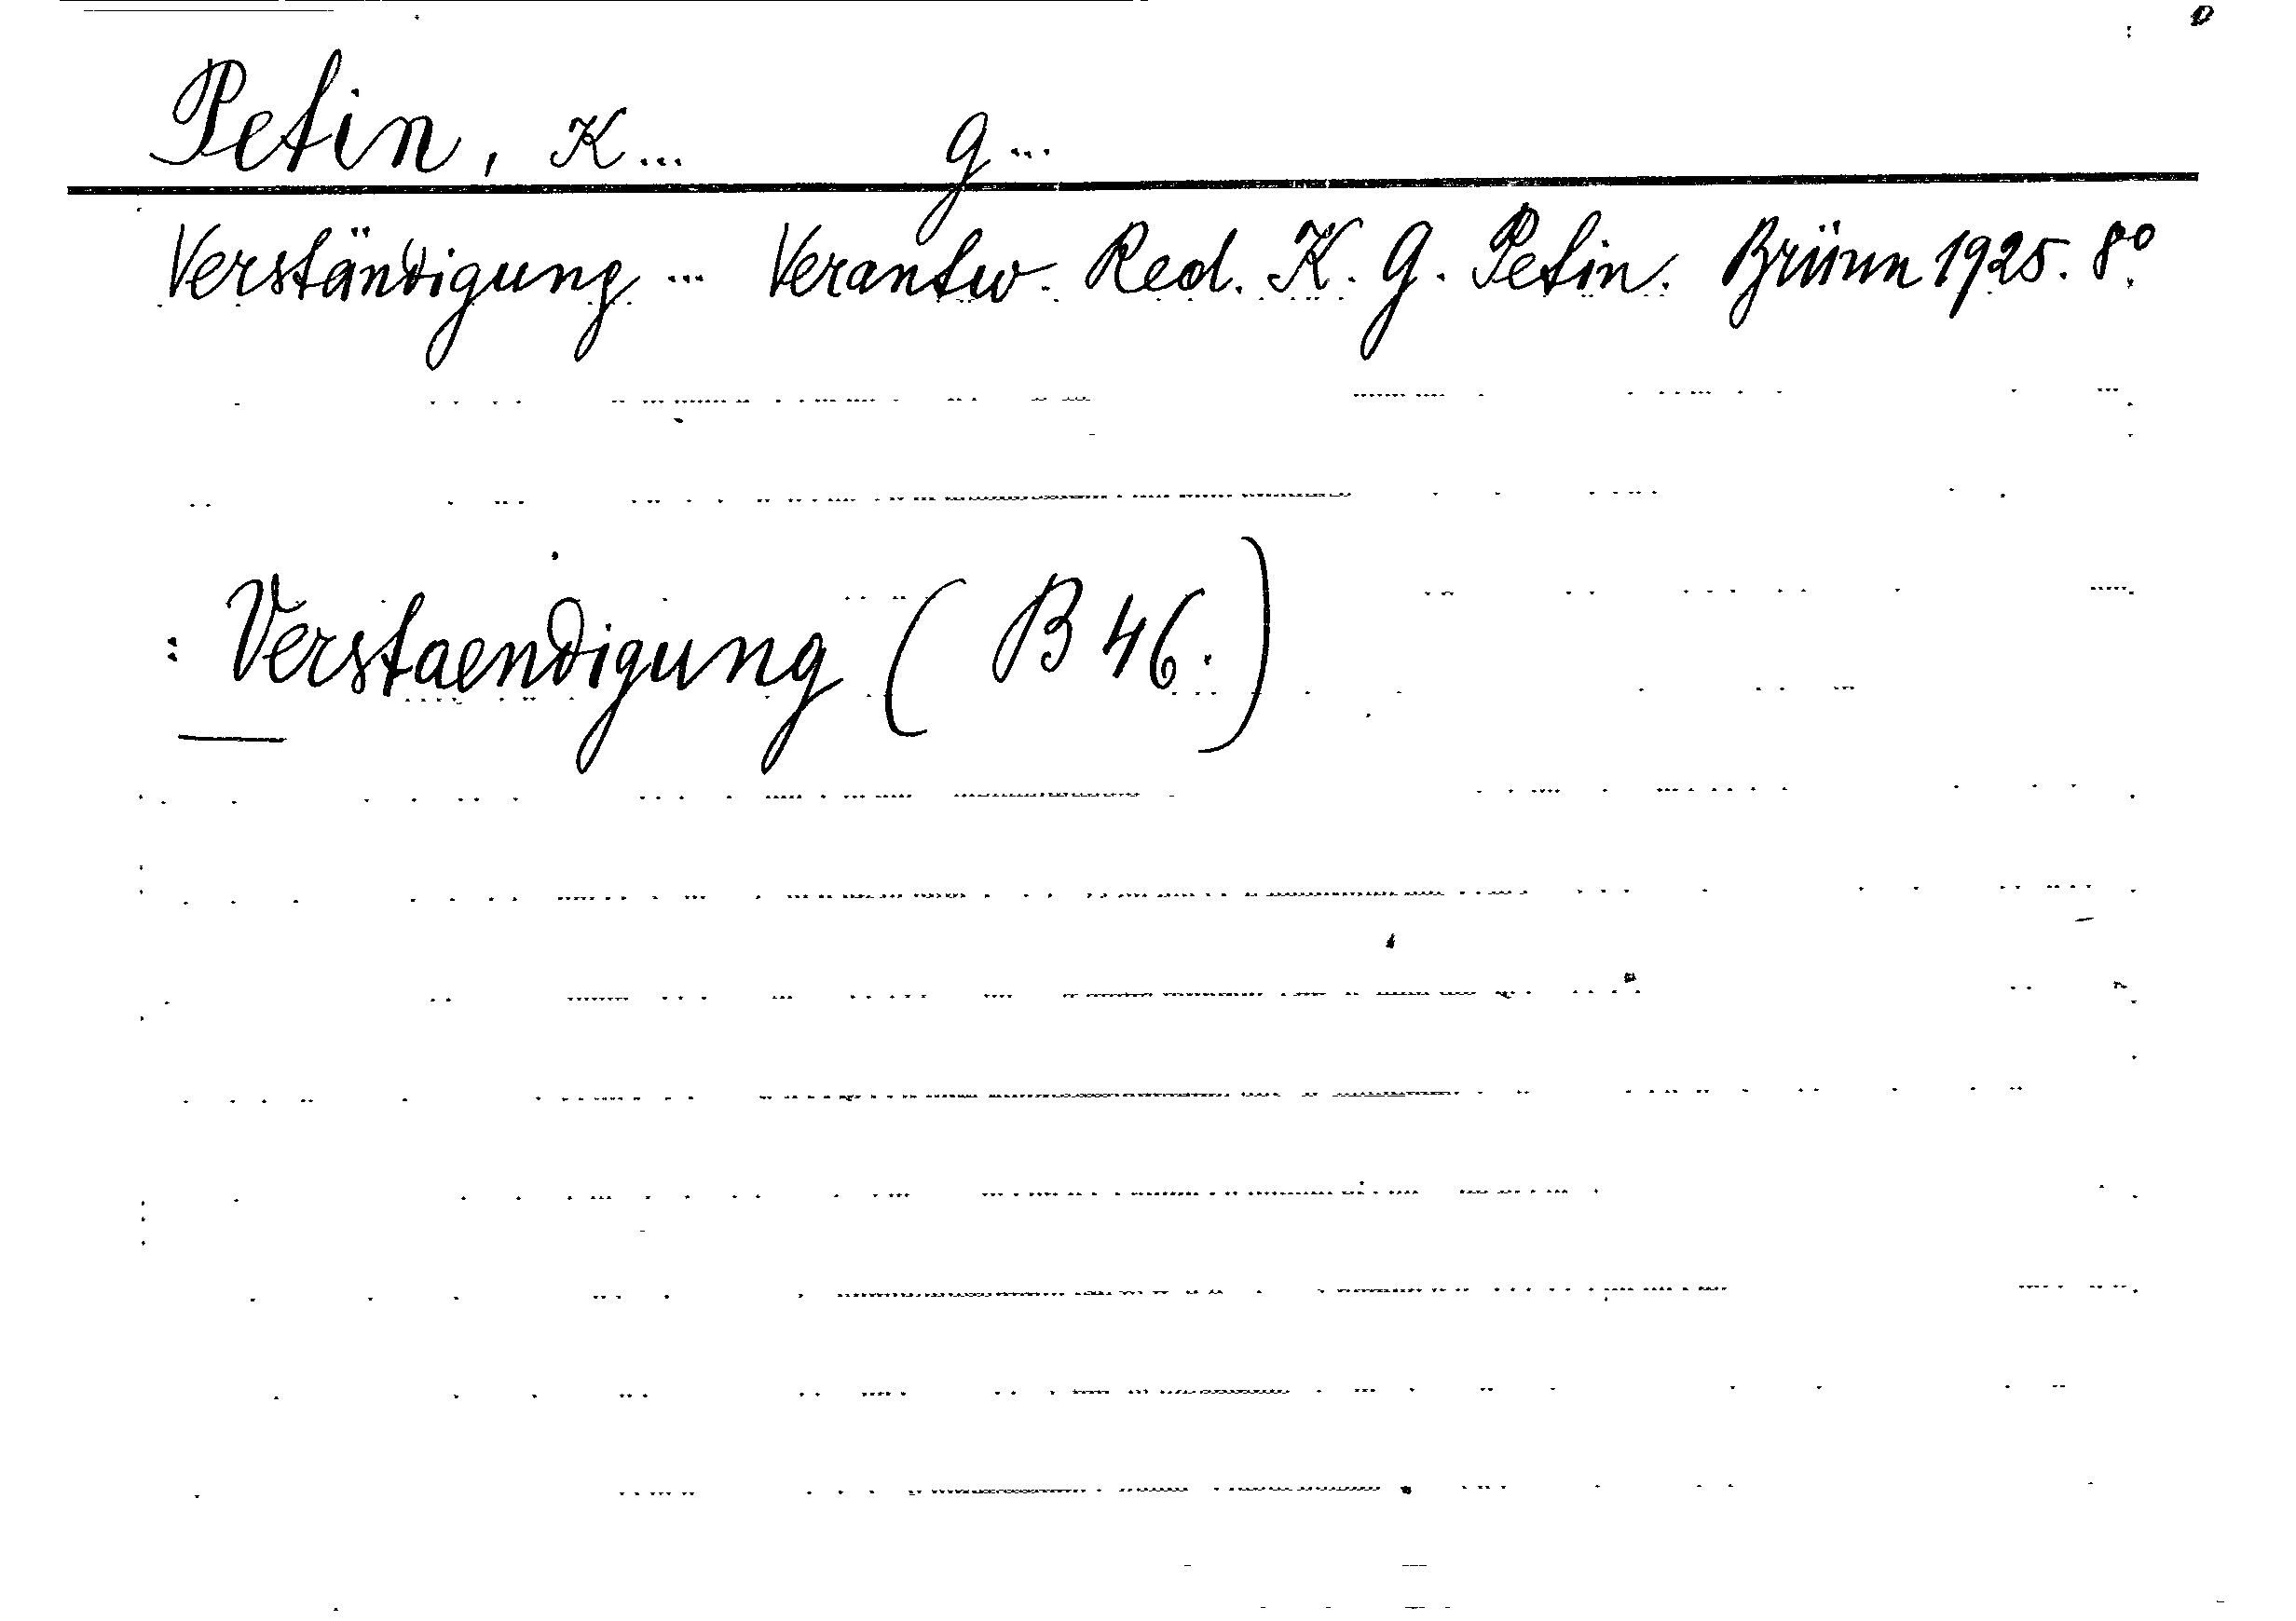 Petin, K... G...
Verständigung ... Verantw. Red. K. G. Petin. Brünn 1925. 8º.
: Verstaendigung ( B 46. )